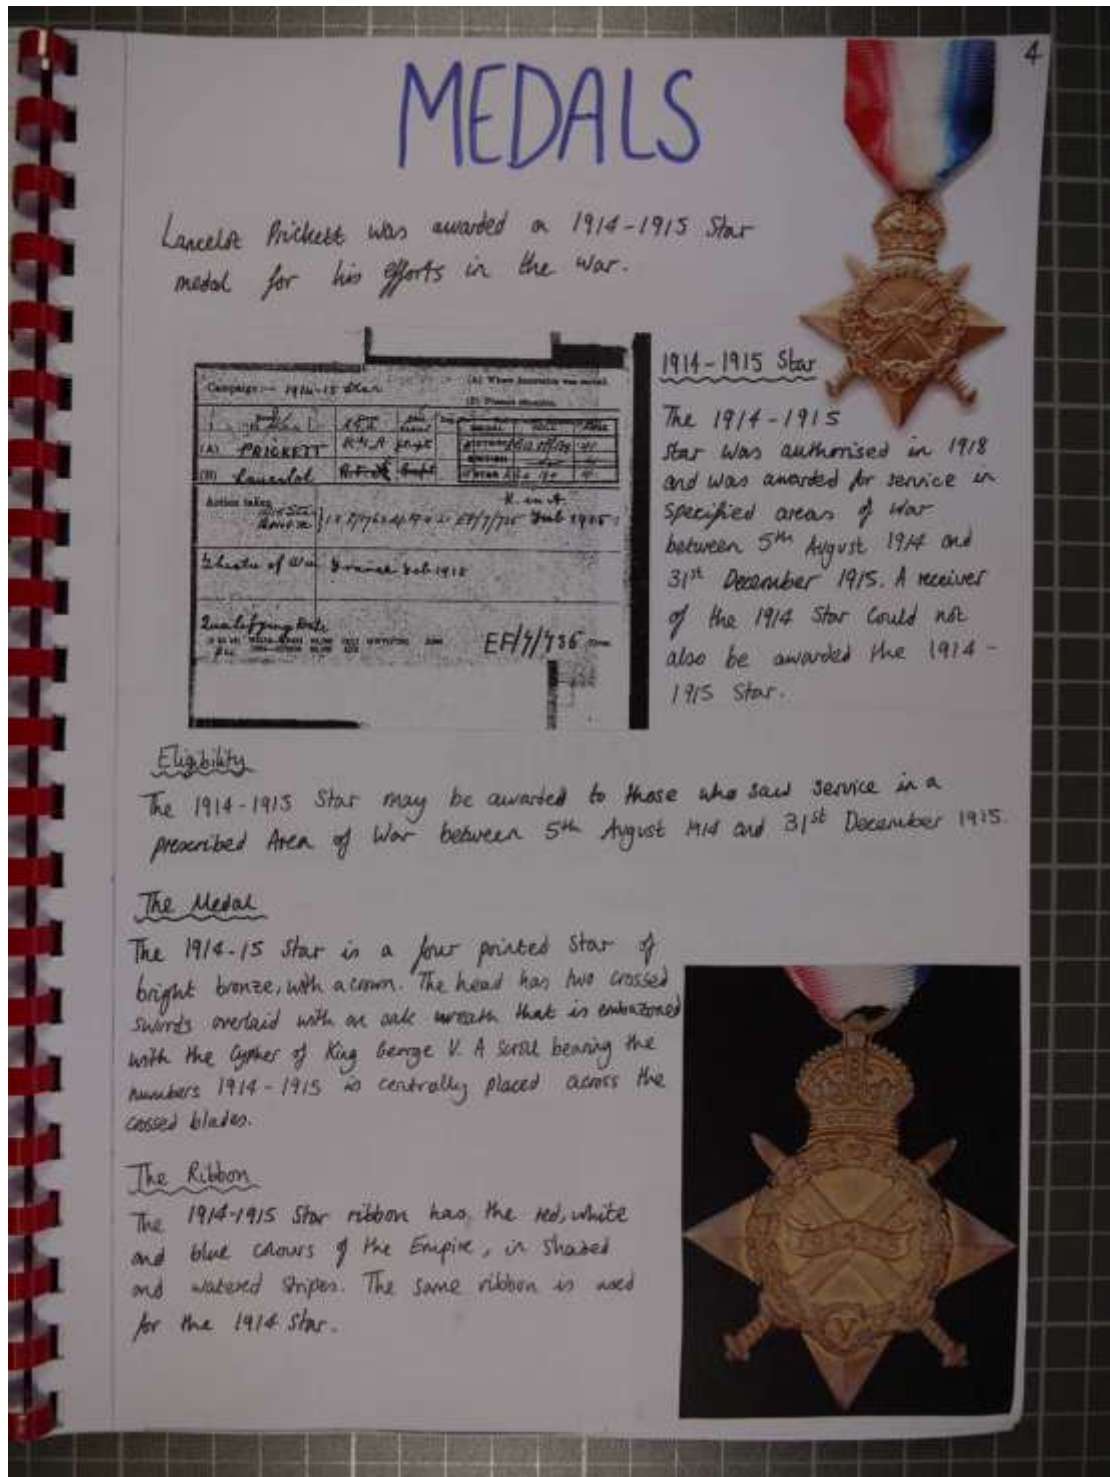 4
MEDALS
Lancelot Prickett was awarded a 1914-1915 Star
medal for his efforts in the war.
Campaign:- 1914-15 Star
(A) Where decoration was earned.
(B) Present situation.
(A) PRICKETT
(B) Lancelot
Action taken
K. in A.
Feb 1915
Theatre of War France Feb 1915
Qualifying Date
EF/7/735
1914-1915 Star
The 1914-1915
Star was authorised in 1918
and was awarded for service in
specified areas of war
between 5th August 1914 and
31st December 1915. A receiver
of the 1914 Star could not
also be awarded the 1914-
1915 Star.
Eligibility
The 1914-1915 Star may be awarded to those who saw service in a
prescribed Area of War between 5th August 1914 and 31st December 1915.
The Medal
The 1914-15 Star is a four pointed star of
bright bronze, with a crown. The head has two crossed
swords overlaid with an oak wreath that is embazoned
with the Cypher of King George V. A scroll bearing the
numbers 1914-1915 is centrally placed across the
crossed blades.
The Ribbon
The 1914-1915 Star ribbon has, the red, white
and blue colours of the Empire, in shaded
and watered stripes. The same ribbon is used
for the 1914 Star.